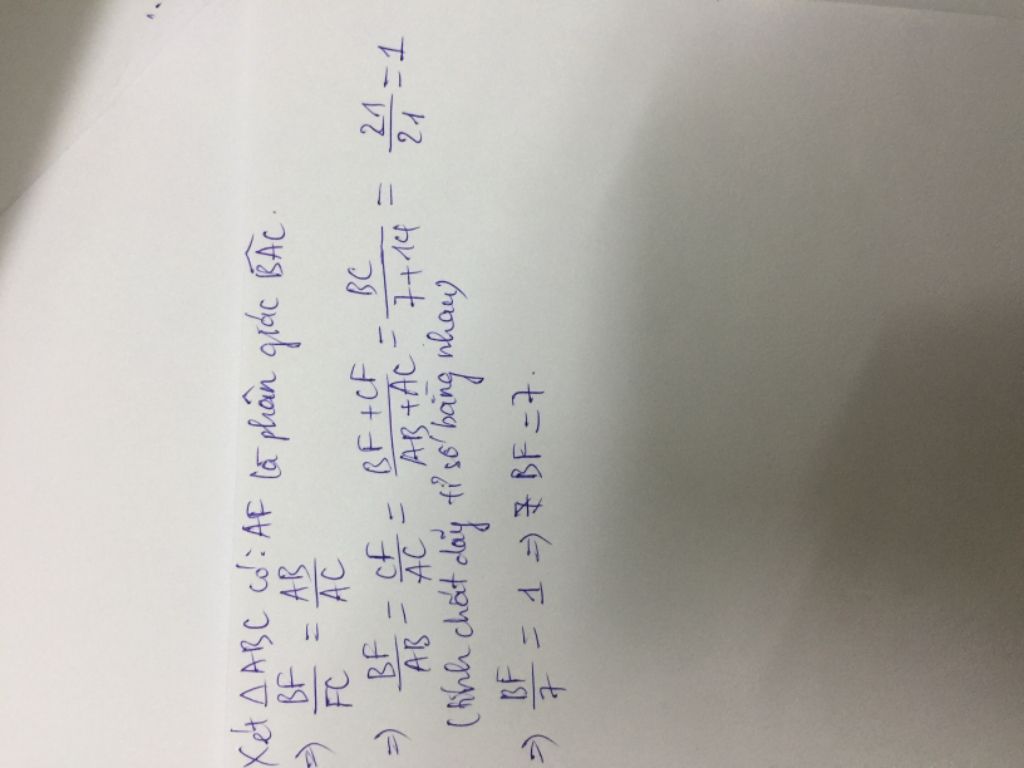 Xét △ABC có: AF là phân giác BAC.
=> BF/FC = AB/AC
=> BF/AB = CF/AC = BF+CF/AB+AC = BC/7+14 = 21/21 = 1
(tính chất dãy tỉ số bằng nhau)
=> BF/7 = 1 => BF = 7.